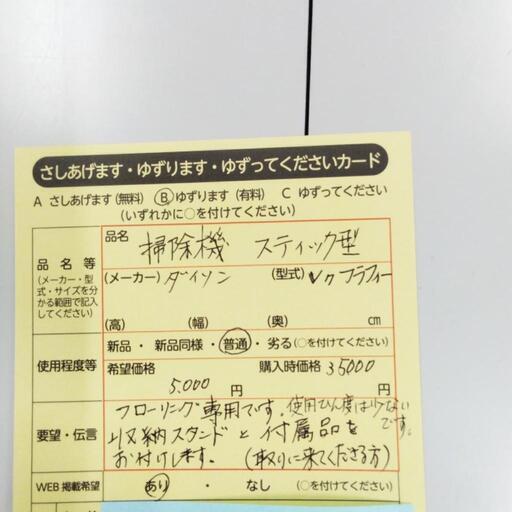 さしあげます・ゆずります・ゆずってくださいカード
A さしあげます(無料) Ⓑ ゆずります(有料) C ゆずってください
(いずれかに○を付けてください)
品名 掃除機 スティック型
品名等
(メーカー・型式・サイズを分かる範囲で記入してください)
(メーカー) ダイソン (型式) V7 フラフィー
(高) (幅) (奥) cm
使用程度等
新品・新品同様・普通・劣る(○を付けてください)
希望価格 5,000 円 購入時価格 35000 円
要望・伝言
フローリング専用です。使用ひん度は少ないです。
収納スタンドと付属品を
お付けします。(取りに来てくださる方)
WEB掲載希望 あり ・ なし (○を付けてください)